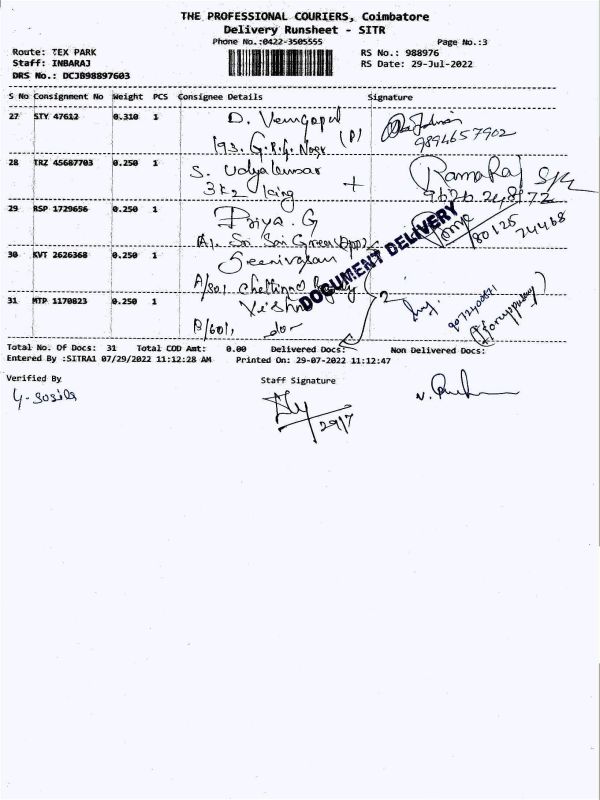 THE PROFESSIONAL COURIERS, Coimbatore
Delivery Runsheet - SITR
Phone No.:0422-3505555 Page No.:3
Route: TEX PARK RS No.: 988976
Staff: INBARAJ RS Date: 29-Jul-2022
DRS No.: DCJB98897603
S No Consignment No Weight PCS Consignee Details Signature
27 STY 47612 0.310 1 D. Venugopal
193. G.R.G. Nagr (P) 9894657902
28 TRZ 45687703 0.250 1 S. Udyakumar RamaRaj
3k2 + 9626248172
29 RSP 1729656 0.250 1 Priya. G
A1. Sri Sai Green 80125 74468
DOCUMENT DELIVERY
30 KVT 2626368 0.250 1 Seenivasan
A/801 2
31 MTP 1170823 0.250 1 Vishnu
B/601, do-
Total No. Of Docs: 31 Total COD Amt: 0.00 Delivered Docs: Non Delivered Docs:
Entered By :SITRA1 07/29/2022 11:12:28 AM Printed On: 29-07-2022 11:12:47
Verified By Staff Signature
29/7